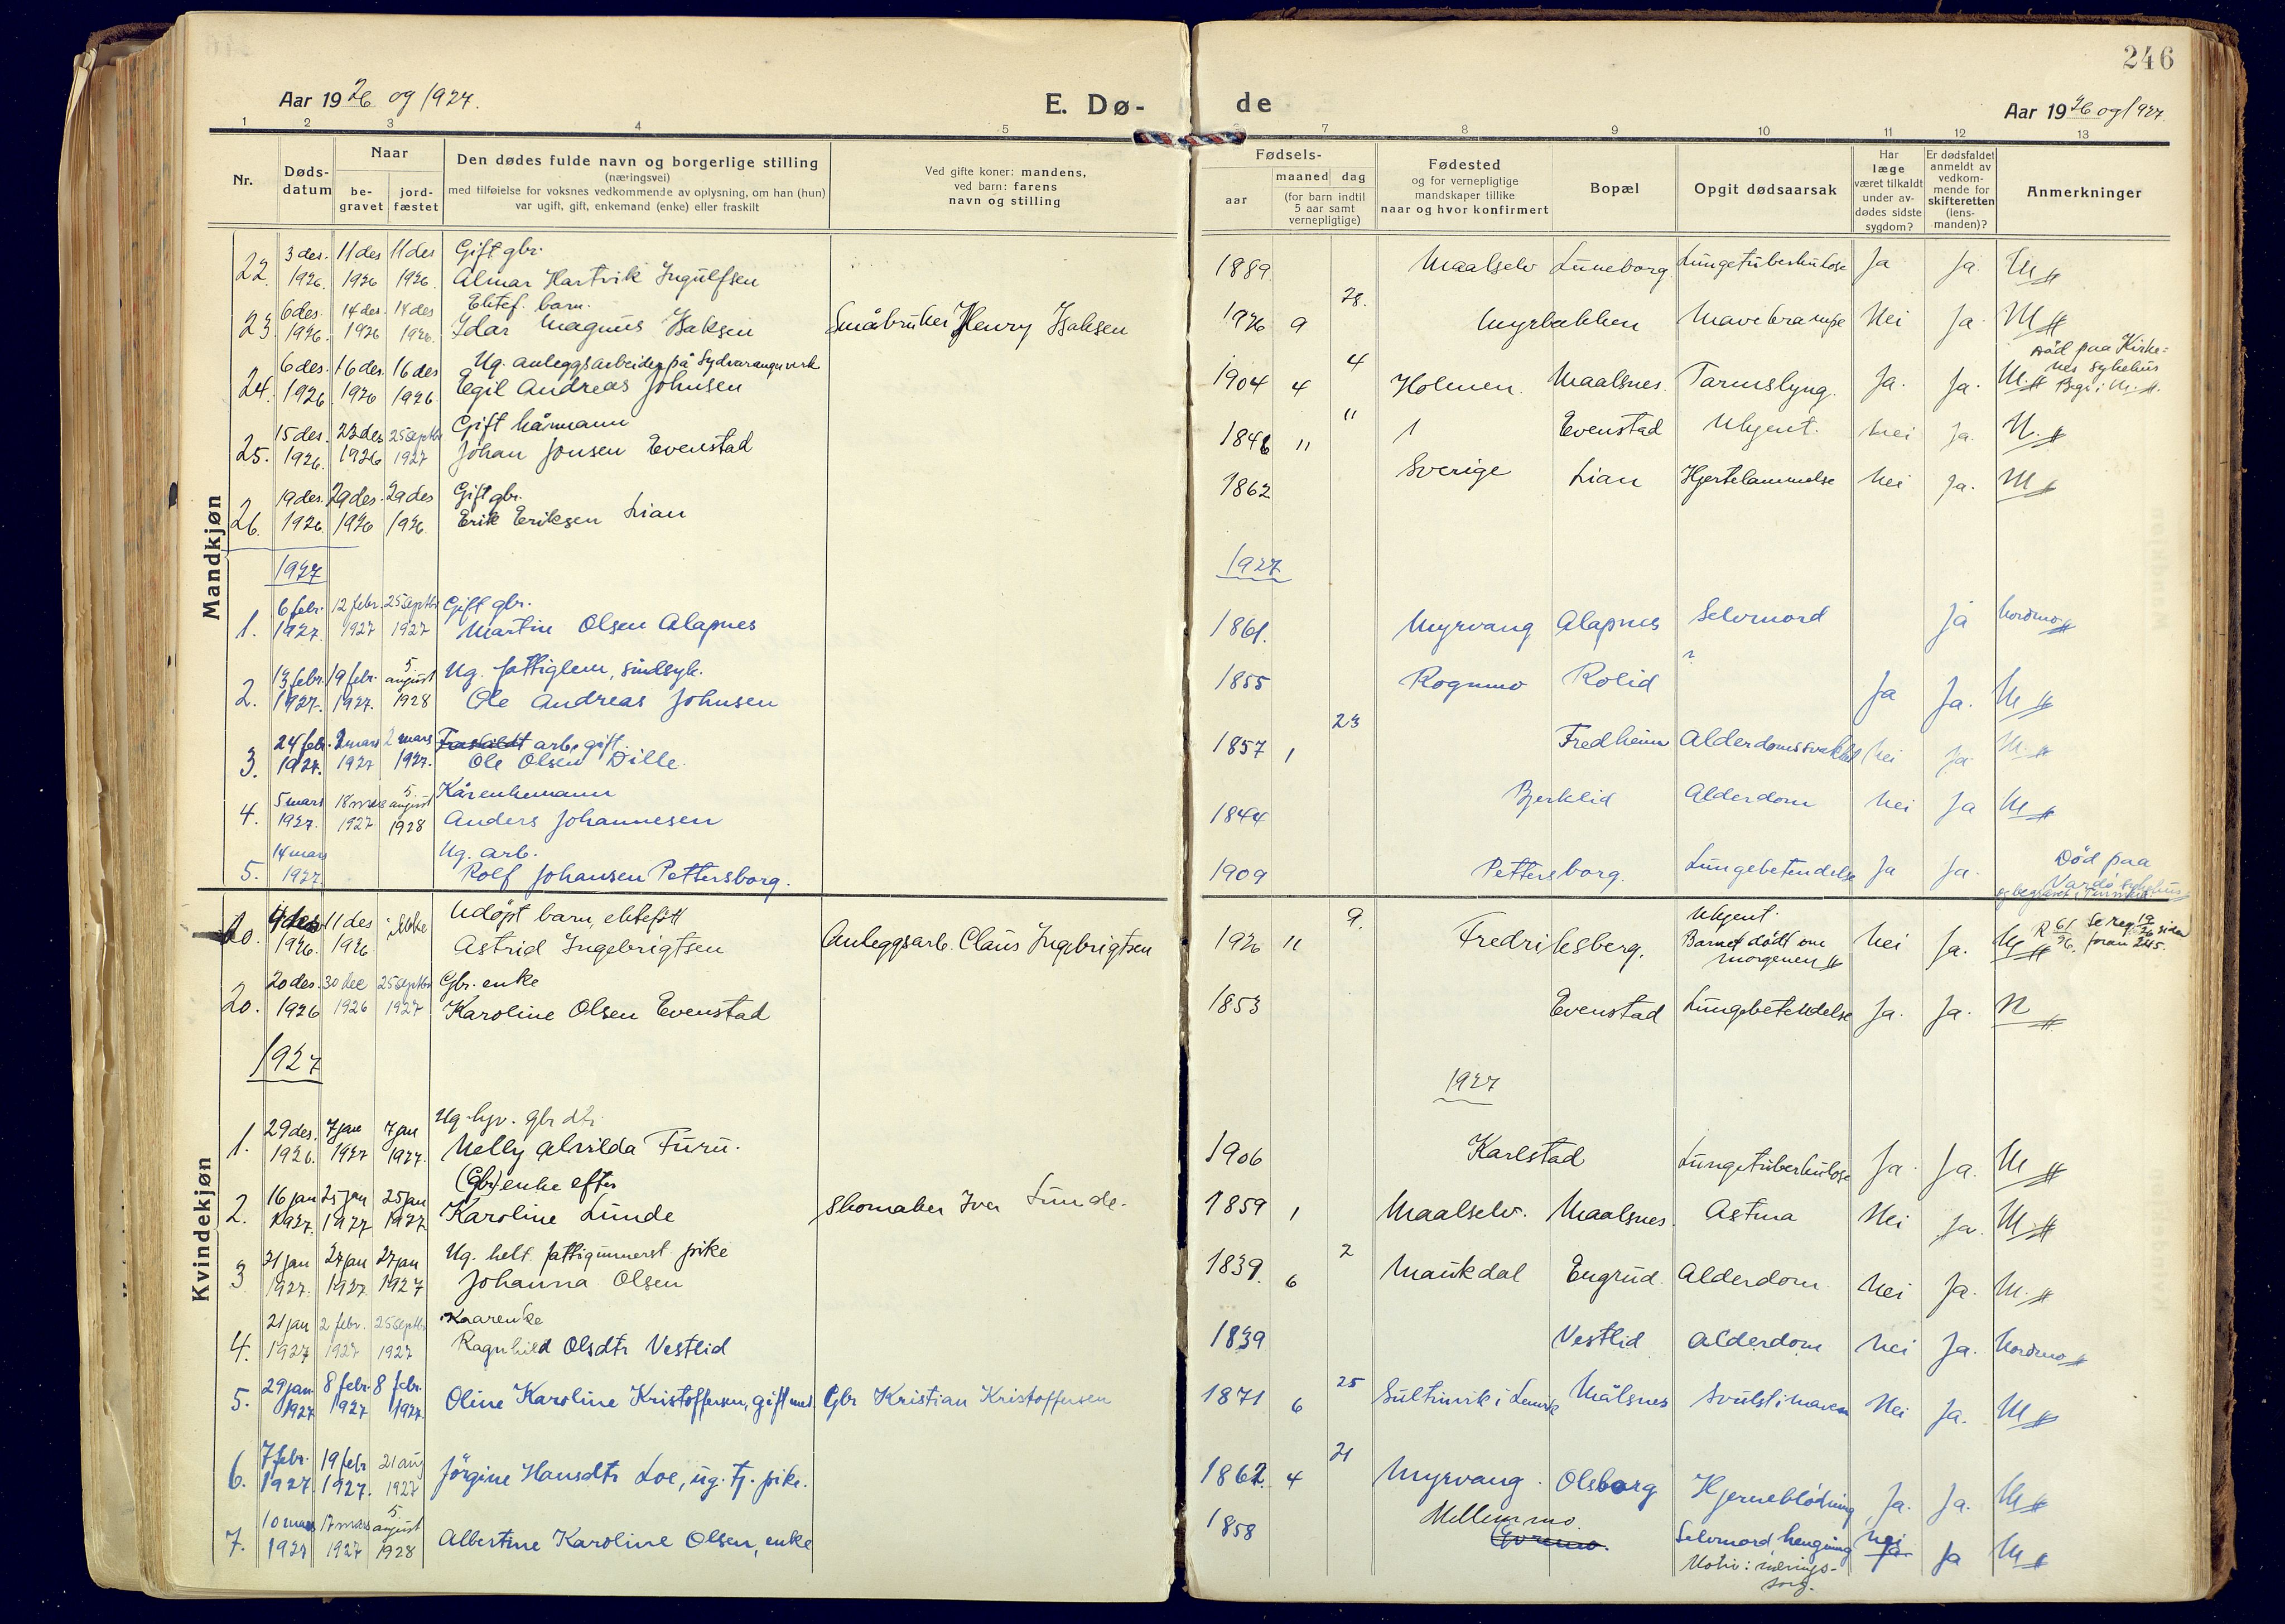 246
Aar 1926 og 1927.
E. Dø-
de
Aar 1926 og 1927.
1 2 3 4 5 6 7 8 9 10 11 12 13
Nr.
Døds-
datum
Naar
be-
gravet
jord-
fæstet
Den dødes fulde navn og borgerlige stilling
(næringsvei)
med tilføielse for voksnes vedkommende av oplysning, om han (hun)
var ugift, gift, enkemand (enke) eller fraskilt
Ved gifte koner: mandens,
ved barn: farens
navn og stilling
Fødsels-
aar
maaned dag
(for barn indtil
5 aar samt
vernepligtige)
Fødested
og for vernepligtige
mandskaper tillike
naar og hvor konfirmert
Bopæl
Opgit dødsaarsak
Har
læge
været tilkaldt
under av-
dødes sidste
sygdom?
Er dødsfaldet
anmeldt av
vedkom-
mende for
skifteretten
(lens-
manden)?
Anmerkninger
Mandkjøn
3 des. 11 des 11 des Gift gbr.
22. 1926. 1926 1926. Almar Hartvik Ingulfsen 1889. Maalselv Luneborg. Lungetuberkulose Ja Ja. M
6 des. 14 des. 14 des Ektef. barn. 28.
23. 1926. 1926 1926. Idar Magnus Isaksen Småbruker Henry Isaksen 1926 9 Myrbakken Mavekrampe Nei Ja. M
6 des. 16 des. 16 des Ug. anleggsarbeider på Sydvarangerverk 4 Død paa Kirke=
nes sykehus
24. 1926. 1926 1926. Egil Andreas Johnsen 1904 4 Holmen. Maalsnes. Tarmslyng. Ja. Ja. M. Begr. i M.
15 des. 23 des 25 septbr Gift kårmann 11
25. 1926. 1926 1927 Johan Jonsen Evenstad 1846 11 Evenstad Ukjent. Nei Ja. N.
19 des. 29 des. 29 des Gift gbr.
26. 1926. 1926 1926. Erik Eriksen Lian 1862 Sverige Lian Hjertelammelse Nei Ja. M
1927 1927
6 febr. 12 febr. 25 septbr Gift gbr.
1. 1927. 1927 1927 Martin Olsen Alapnes 1861. Myrvang Alapnes Selvmord Ja Nordmo
13 febr. 19 febr. 5. august Ug. fattiglem, sindsyk.
2. 1927. 1927. 1928 Ole Andreas Johnsen 1855 Rognmo Rolid ? Ja Ja. M
24 febr. 2 mars 2 mars Fraskildt arb. gift. 23
3. 1927. 1927 1927. Ole Olsen Dille. 1857 1 Fredheim Alderdomssvakhet Nei Ja. M.
5 mars 18 mars 5. august Kårenkemann
4. 1927. 1927 1928 Anders Johannesen 1844 Bjerklid Alderdom Nei Ja M
14 mars Ug. arb.
5. 1927 Rolf Johansen Pettersborg. 1909 Pettersborg. Lungebetendelse Ja Ja. Død paa
Vardø sykehus
Kvindekjøn
9 des 11 des ikke Udöpt barn, ektefött 9. Ukjent.
20. 1926. 1926. Astrid Ingebrigtsen Anleggsarb. Claus Ingebrigtsen 1926 11 Fredriksberg. Barnet dödt om
morgenen Nei Ja. M R 61/26. Se reg. 19/26 side
foran 245.
20 des. 30 dec 25 septbr Gbr. enke
20. 1926 1926 1927 Karoline Olsen Evenstad 1853 Evenstad Lungebetendelse Ja. Ja. N
1927 1927
29 des. 7 jan 7 jan Ug. hjv. gbr dtr.
1. 1926. 1927 1927. Nelly Alvilda Furu. 1906 Karlstad Lungetuberkulose Ja. Ja. M
16 jan 25 jan 25 jan (Gbr) enke efter
2. 1927. 1927 1927 Karoline Lunde Skomaker Iver Lunde. 1859 1 Maalselv. Maalsnes. Astma Nei Ja. M.
21 jan 27 jan 27 jan Ug. helt fattigunnerst. pike 2
3 1927. 1927. 1927 Johanna Olsen 1839. 6 Maukdal Engrud. Alderdom. Nei Ja. M.
21 jan 2 febr. 25 septbr Kaarenke
4. 1927 1927 1927 Ragnhild Olsdtr Vestlid 1839 Vestlid Alderdom Nei Ja. Nordmo
29 jan. 8 febr. 8 febr. 25
5. 1927 1927 1927. Oline Karoline Kristoffersen, gift med. Gbr Kristian Kristoffersen 1871 6 Gultinvik i Lenvik Målsnes Svulst i maven Nei Ja. M
7 febr. 19 febr 21 aug 21
6. 1927. 1927. 1927 Jörgine Hansdtr Loe, ug. tj. pike. 1862. 4 Myrvang. Olsborg Hjerneblödning Ja. Ja. M
10 mars 17 mars 5. august Mellemmo.
7. 1927 1927 1928 Albertine Karoline Olsen, enke 1858 (Evremo. Selvmord, hengning
Motiv: nærings-
sorg. Nei
Ja Ja M